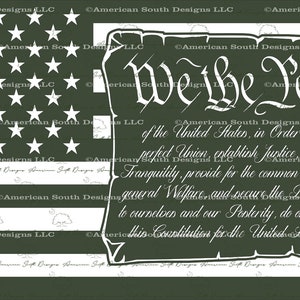 ©American South Designs LLC
©American South Designs LLC
We the Pe
©American South Designs LLC
of the United States, in Order
perfect Union, establish Justice
©American South Designs LLC
Tranquility, provide for the common
American South Designs American South Designs
general Welfare, and secure the
©American South Designs LLC
to ourselves and our Posterity, do
this Constitution for the United
©American South Designs LLC
©American South Designs LLC